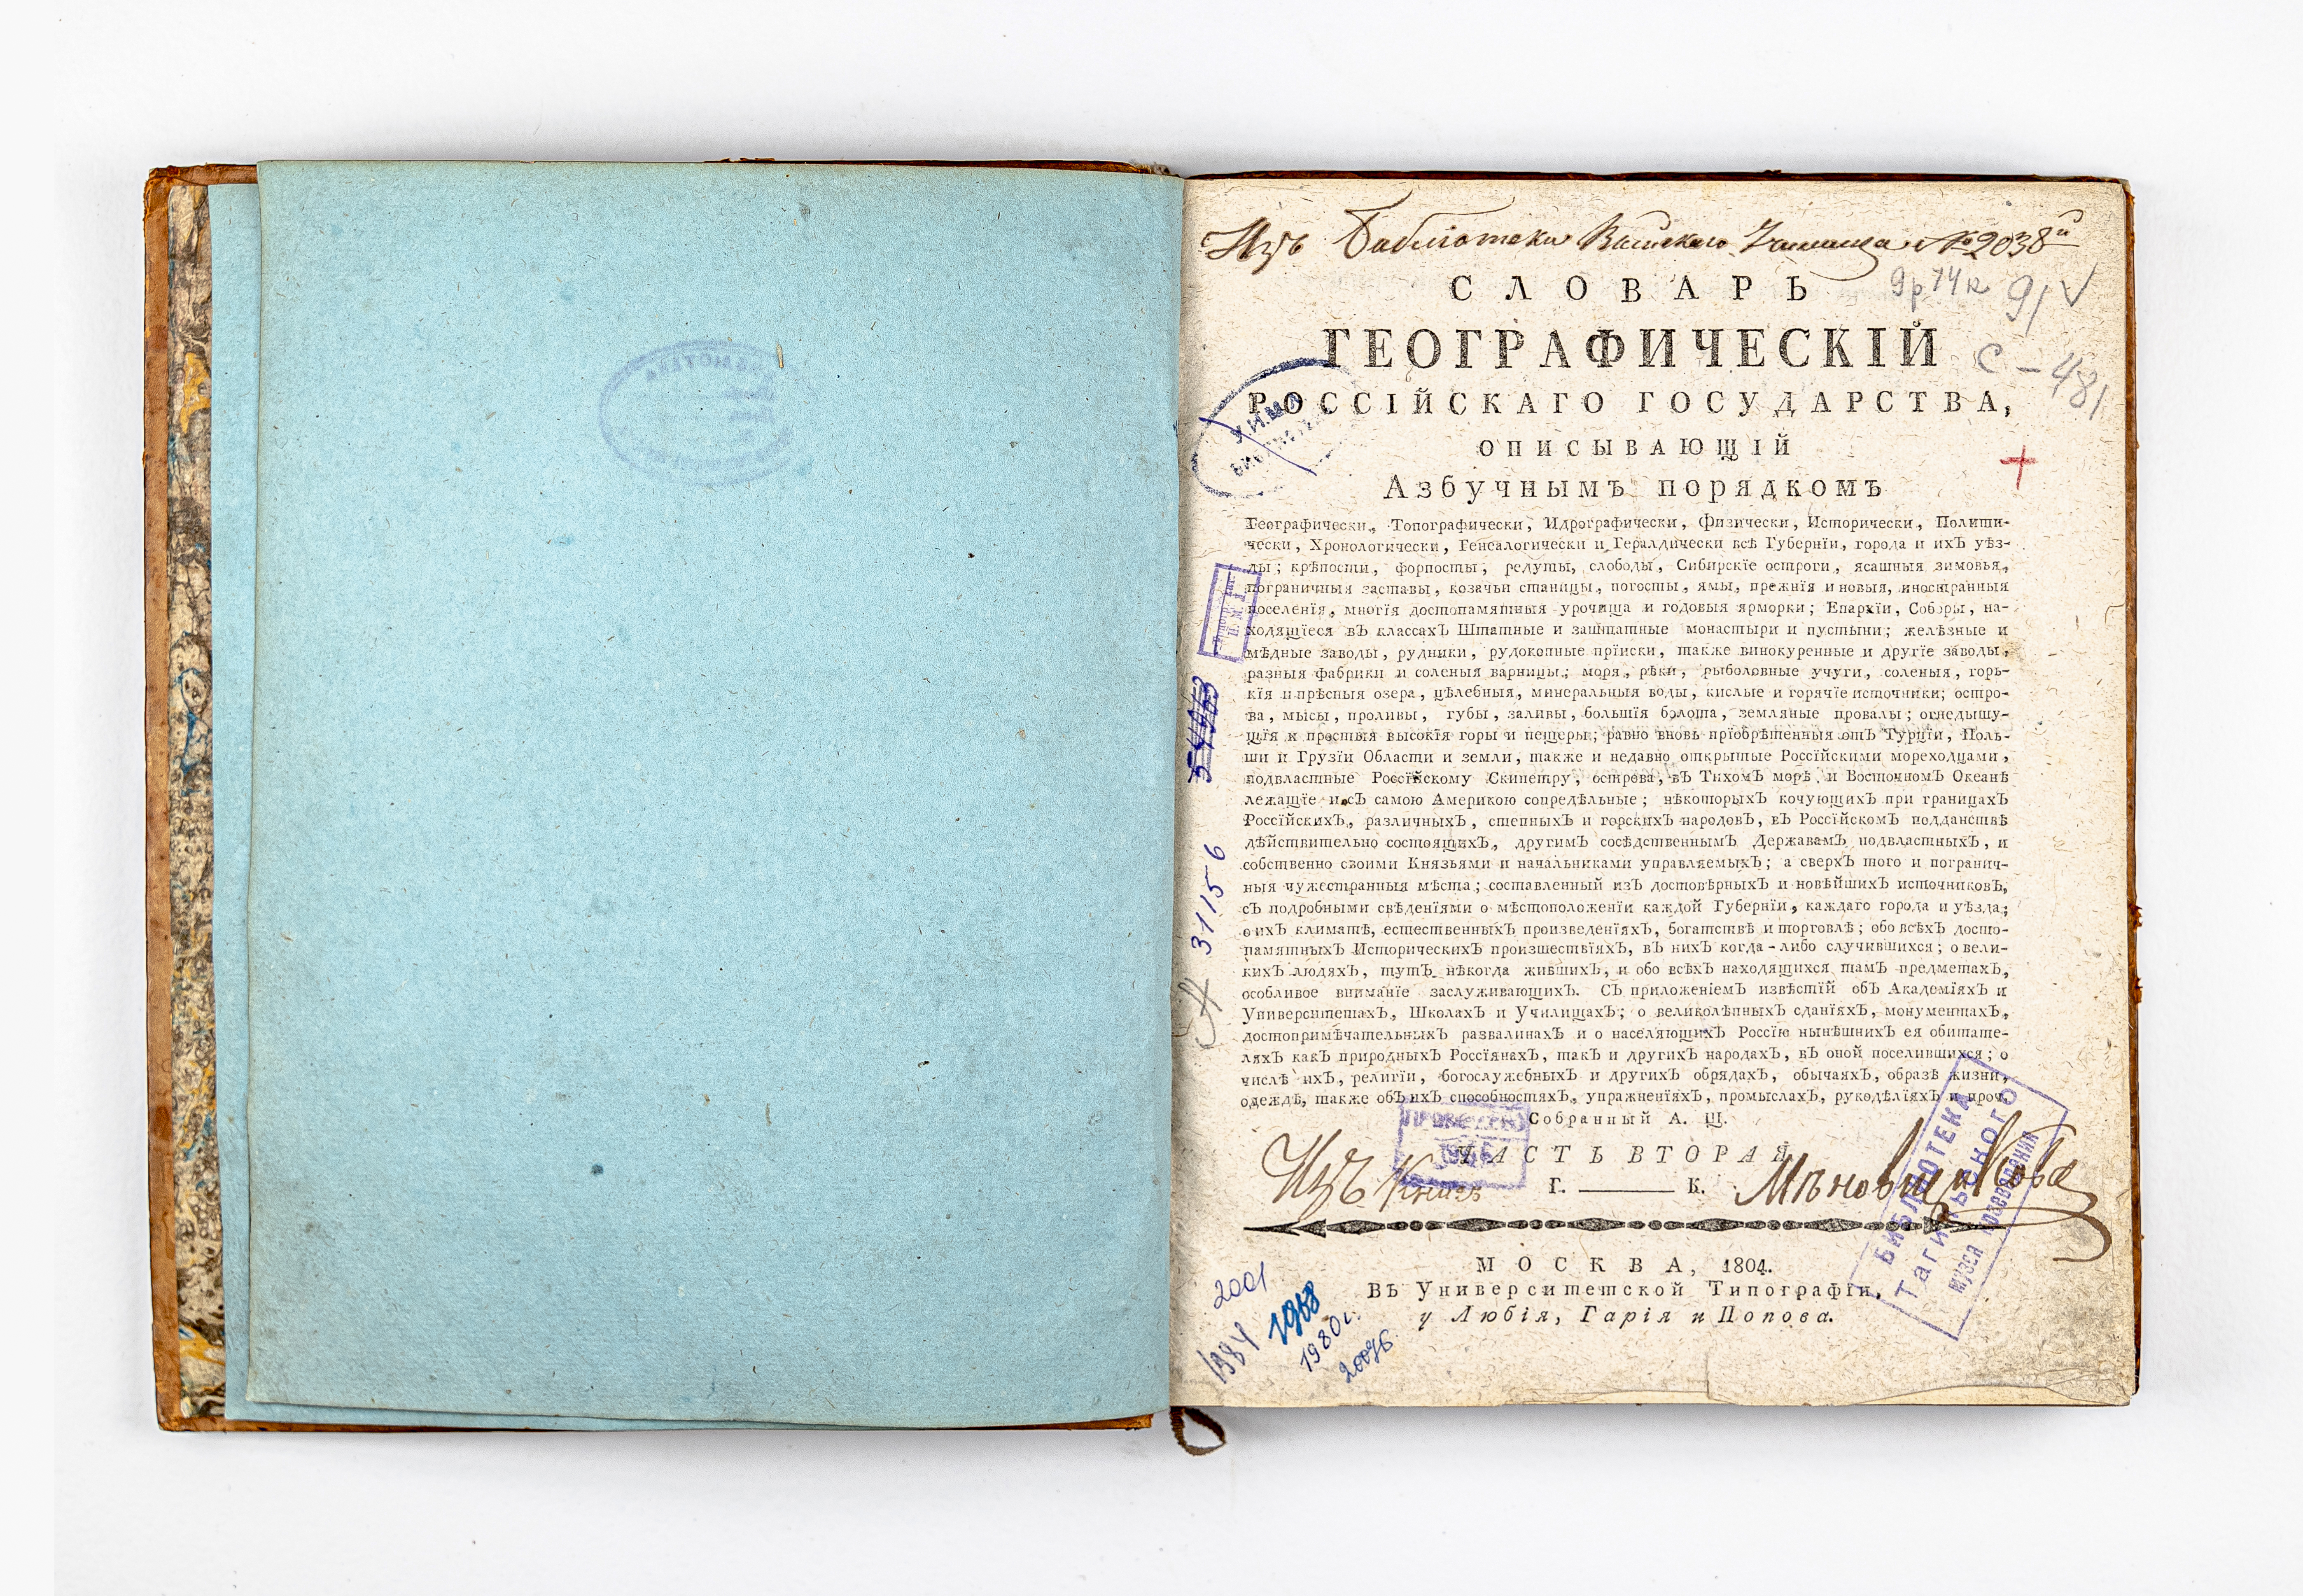 Изъ Библіотеки Выйскаго Училища №2038й
СЛОВАРЬ
9р14к 91
ГЕОГРАФИЧЕСКІЙ
С-481
РОССІЙСКАГО ГОСУДАРСТВА,
ОПИСЫВАЮЩІЙ
Азбучнымъ порядкомъ
Географически, Топографически, Идрографически, Физически, Исторически, Полити-
чески, Хронологически, Генеалогически и Геральдически всѣ Губерніи, города и ихъ уѣз-
ды; крѣпости, форпосты, редуты, слободы, Сибирскіе остроги, ясашныя зимовья,
пограничныя заставы, козачьи станицы, погосты, ямы, прежнія и новыя, иностранныя
поселенія, многія достопамятныя урочища и годовыя ярморки; Епархіи, Соборы, на-
ходящіеся въ классахъ Штатные и заштатные монастыри и пустыни; желѣзные и
мѣдные заводы, рудники, рудокопные пріиски, также винокуренные и другіе заводы,
разныя фабрики и соленыя варницы; моря, рѣки, рыболовные учуги, соленыя, горь-
кія и прѣсныя озера, цѣлебныя, минеральныя воды, кислые и горячіе источники; остро-
ва, мысы, проливы, губы, заливы, большія болота, земляные провалы; огнедышу-
щія и простыя высокія горы и пещеры; равно вновь пріобрѣтенныя отъ Турціи, Поль-
ши и Грузіи Области и земли, также и недавно открытые Россійскими мореходцами,
подвластные Россійскому Скипетру, острова, въ Тихомъ морѣ и Восточномъ Океанѣ
лежащіе и съ самою Америкою сопредѣльные; нѣкоторыхъ кочующихъ при границахъ
Россійскихъ, различныхъ, степныхъ и горскихъ народовъ, въ Россійскомъ подданствѣ
дѣйствительно состоящихъ, другимъ сосѣдственнымъ Державамъ подвластныхъ, и
собственно своими Князьями и начальниками управляемыхъ; а сверхъ того и погранич-
ныя чужестранныя мѣста; составленный изъ достовѣрныхъ и новѣйшихъ источниковъ,
съ подробными свѣденіями о мѣстоположеніи каждой Губерніи, каждаго города и уѣзда;
о ихъ климатѣ, естественныхъ произведеніяхъ, богатствѣ и торговлѣ; обо всѣхъ досто-
памятныхъ Историческихъ произшествіяхъ, въ нихъ когда-либо случившихся; о вели-
кихъ людяхъ, тутъ нѣкогда жившихъ, и обо всѣхъ находящихся тамъ предметахъ,
особливое вниманіе заслуживающихъ. Съ приложеніемъ извѣстій объ Академіяхъ и
Университетахъ, Школахъ и Училищахъ; о великолѣпныхъ зданіяхъ, монументахъ,
достопримѣчательныхъ развалинахъ и о населяющихъ Россію нынѣшнихъ ея обитате-
ляхъ какъ природныхъ Россіянахъ, такъ и другихъ народахъ, въ оной поселившихся; о
числѣ ихъ, религіи, богослужебныхъ и другихъ обрядахъ, обычаяхъ, образѣ жизни,
одеждѣ, также объ ихъ способностяхъ, упражненіяхъ, промыслахъ, рукодѣліяхъ и проч.
Собранный А. Щ.
ЧАСТЬ ВТОРАЯ
Г. — К.
Изъ Книгъ Мѣновщикова
МОСКВА, 1804.
Въ Университетской Типографіи,
у Любія, Гарія и Попова.
БИБЛИОТЕКА
Тагильского
музея краеведения
31156
2001
1984
1968
1980 г.